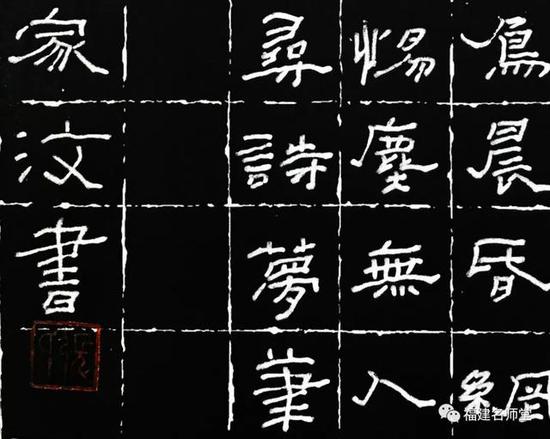 鳥晨昏網
惕塵無人
尋詩夢筆
家汶書
福建名师堂